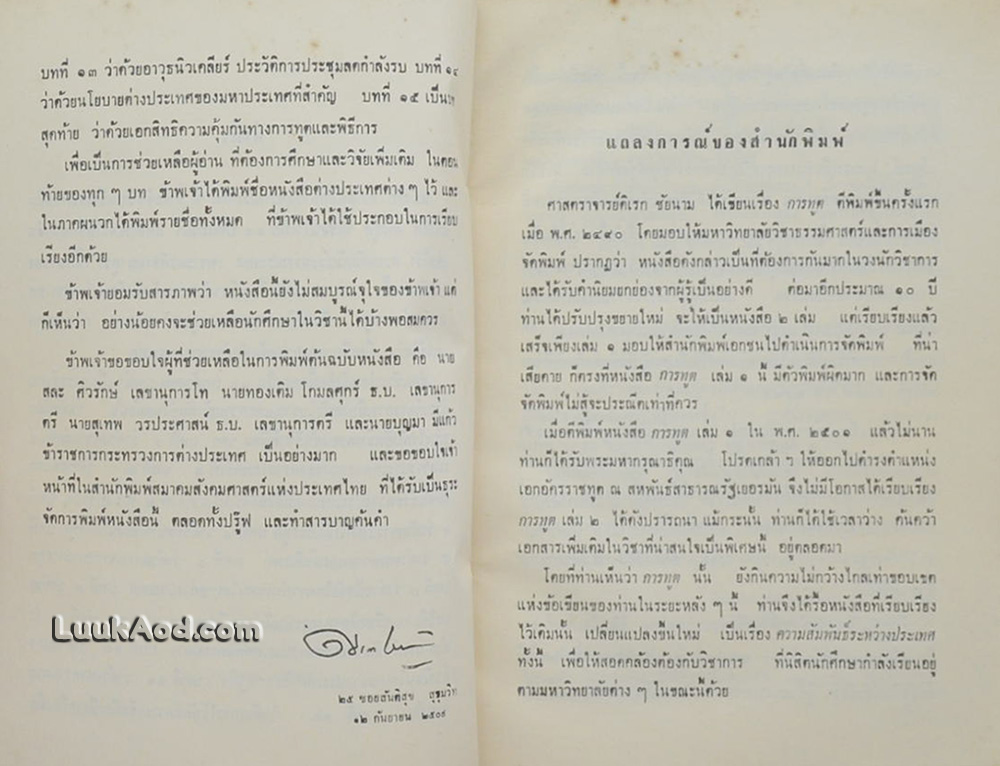 บทที่ ๑๓ ว่าด้วยอาวุธนิวเคลียร์ ประวัติการประชุมลดกำลังรบ บทที่ ๑๔
ว่าด้วยนโยบายต่างประเทศของมหาประเทศที่สำคัญ บทที่ ๑๕ เป็นบท
สุดท้าย ว่าด้วยเอกสิทธิความคุ้มกันทางการทูตและพิธีการ
เพื่อเป็นการช่วยเหลือผู้อ่าน ที่ต้องการศึกษาและวิจัยเพิ่มเติม ในตอน
ท้ายของทุก ๆ บท ข้าพเจ้าได้พิมพ์ชื่อหนังสือต่างประเทศต่าง ๆ ไว้ และ
ในภาคผนวกได้พิมพ์รายชื่อทั้งหมด ที่ข้าพเจ้าได้ใช้ประกอบในการเรียบ
เรียงอีกด้วย
ข้าพเจ้ายอมรับสารภาพว่า หนังสือนี้ยังไม่สมบูรณ์จุใจของข้าพเจ้า แต่
ก็เห็นว่า อย่างน้อยคงจะช่วยเหลือนักศึกษาในวิชานี้ได้บ้างพอสมควร
ข้าพเจ้าขอขอบใจผู้ที่ช่วยเหลือในการพิมพ์ต้นฉบับหนังสือ คือ นาย
สละ ศิวรักษ์ เลขานุการโท นายทองเติม โกมลศุกร์ ธ.บ. เลขานุการ
ตรี นายสุเทพ วรประศาสน์ ธ.บ. เลขานุการตรี และนายบุญมา มีแก้ว
ข้าราชการกระทรวงการต่างประเทศ เป็นอย่างมาก และขอขอบใจเจ้า
หน้าที่ในสำนักพิมพ์สมาคมสังคมศาสตร์แห่งประเทศไทย ที่ได้รับเป็นธุระ
จัดการพิมพ์หนังสือนี้ ตลอดทั้งปรู๊ฟ และทำสารบาญค้นคำ
LuukAod.com
๒๕ ซอยสันติสุข สุขุมวิท
๑๒ กันยายน ๒๕๐๙
แถลงการณ์ของสำนักพิมพ์
ศาสตราจารย์ดิเรก ชัยนาม ได้เขียนเรื่อง การทูต ตีพิมพ์ขึ้นครั้งแรก
เมื่อ พ.ศ. ๒๔๙๐ โดยมอบให้มหาวิทยาลัยวิชาธรรมศาสตร์และการเมือง
จัดพิมพ์ ปรากฏว่า หนังสือดังกล่าวเป็นที่ต้องการกันมากในวงนักวิชาการ
และได้รับคำนิยมยกย่องจากผู้รู้เป็นอย่างดี ต่อมาอีกประมาณ ๑๐ ปี
ท่านได้ปรับปรุงขยายใหม่ จะให้เป็นหนังสือ ๒ เล่ม แต่เรียบเรียงแล้ว
เสร็จเพียงเล่ม ๑ มอบให้สำนักพิมพ์เอกชนไปดำเนินการจัดพิมพ์ ที่น่า
เสียดาย ก็ตรงที่หนังสือ การทูต เล่ม ๑ นี้ มีตัวพิมพ์ผิดมาก และการจัด
จัดพิมพ์ไม่สู้จะประณีตเท่าที่ควร
เมื่อตีพิมพ์หนังสือ การทูต เล่ม ๑ ใน พ.ศ. ๒๕๐๑ แล้วไม่นาน
ท่านก็ได้รับพระมหากรุณาธิคุณ โปรดเกล้า ฯ ให้ออกไปดำรงตำแหน่ง
เอกอัครราชทูต ณ สหพันธ์สาธารณรัฐเยอรมัน จึงไม่มีโอกาสได้เรียบเรียง
การทูต เล่ม ๒ ได้ดังปรารถนา แม้กระนั้น ท่านก็ได้ใช้เวลาว่าง ค้นคว้า
เอกสารเพิ่มเติมในวิชาที่น่าสนใจเป็นพิเศษนี้ อยู่ตลอดมา
โดยที่ท่านเห็นว่า การทูต นั้น ยังกินความไม่กว้างไกลเท่าขอบเขต
แห่งข้อเขียนของท่านในระยะหลัง ๆ นี้ ท่านจึงได้รื้อหนังสือที่เรียบเรียง
ไว้เดิมนั้น เปลี่ยนแปลงขึ้นใหม่ เป็นเรื่อง ความสัมพันธ์ระหว่างประเทศ
ทั้งนี้ เพื่อให้สอดคล้องต้องกับวิชาการ ที่นิสิตนักศึกษากำลังเรียนอยู่
ตามมหาวิทยาลัยต่าง ๆ ในขณะนี้ด้วย